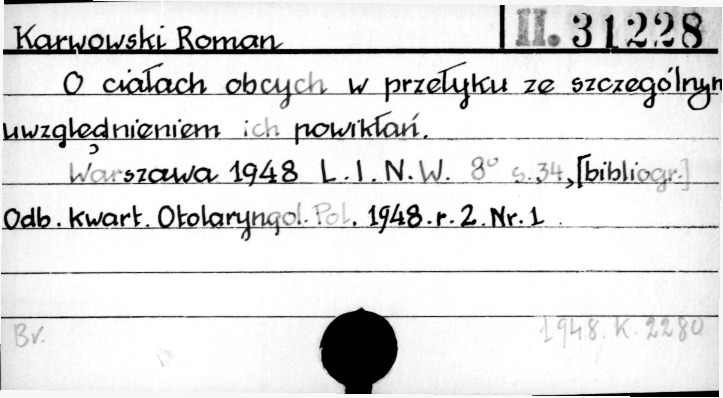 Karwowski Roman II. 31228
O ciałach obcych w przełyku ze szczególnym
uwzględnieniem ich powikłań.
Warszawa 1948 L.I.N.W. 8° s.34, [bibliogr.]
Odb. kwart. Otolaryngol. Pol. 1948. r. 2. Nr. 1.
Br. 1948. K. 2280